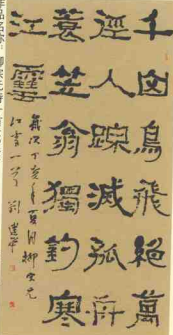 千山鳥飛絕萬
徑人踪滅孤舟
蓑笠翁獨釣寒
江雪
歲次丁亥年夏月柳宗元
江雪一首